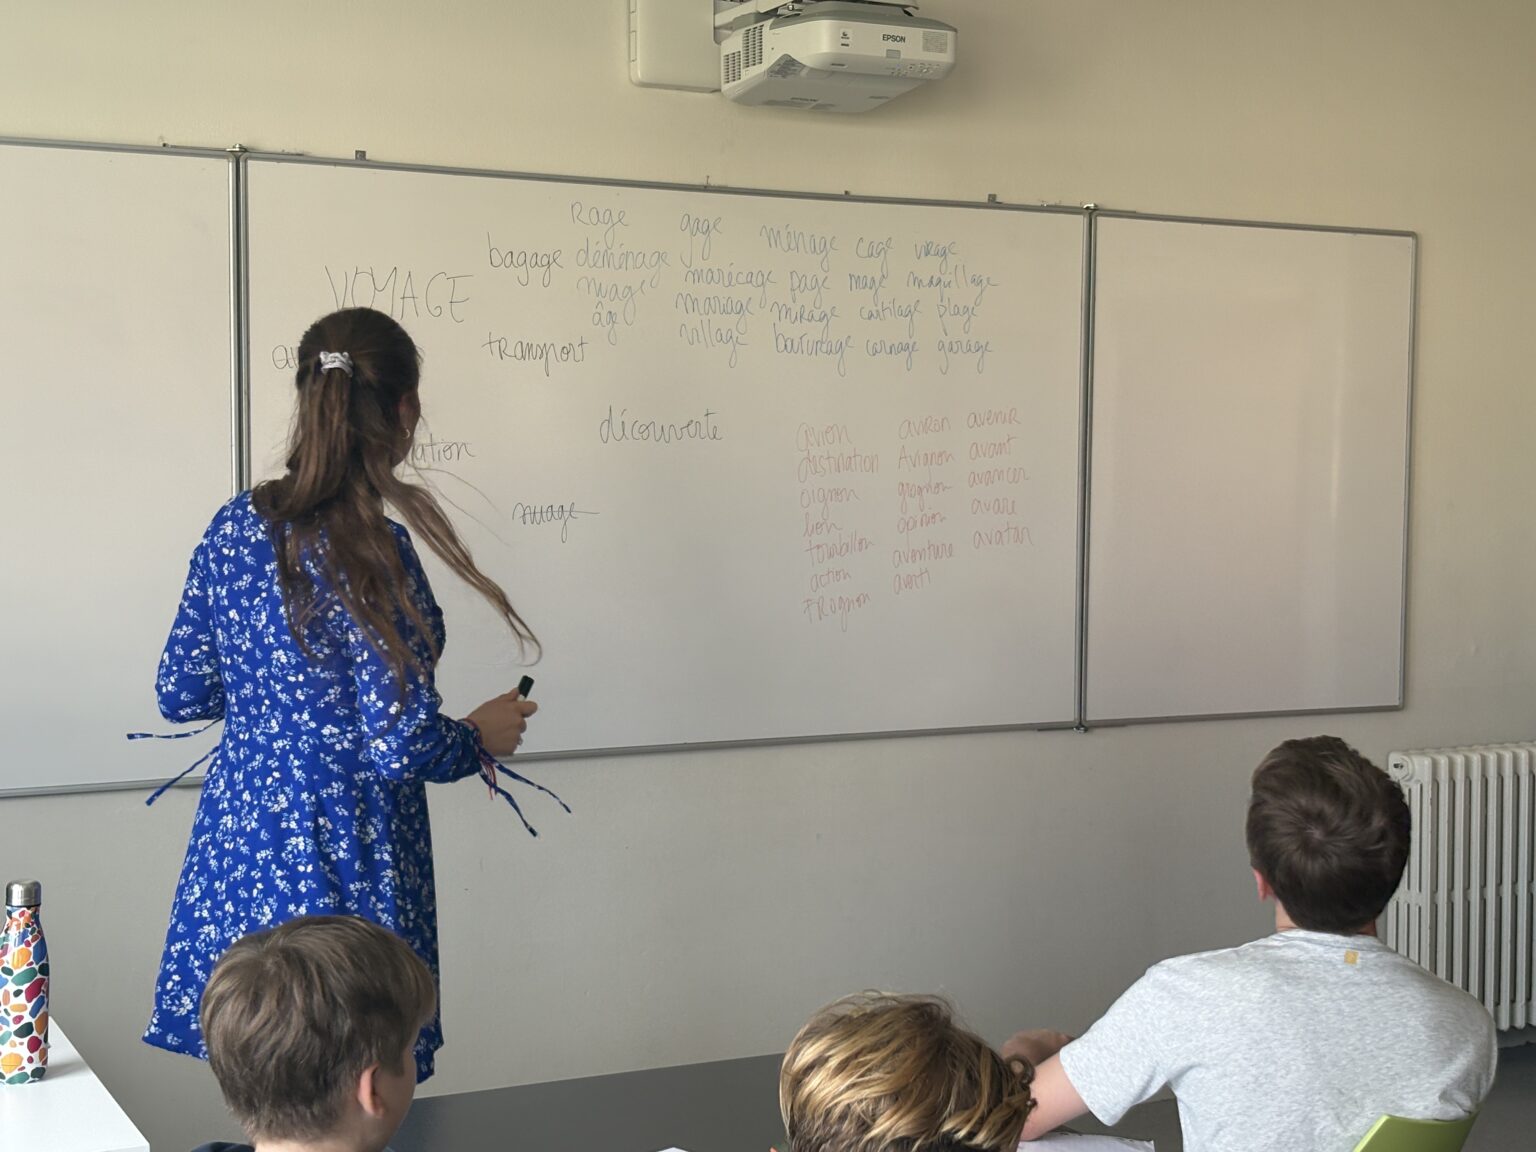 EPSON
Rage gage ménage cage virage
bagage déménage marécage page mage maquillage
VOYAGE
nuage mariage mirage cartilage plage
âge village carnage garage
transport
découverte
nuage
avion aviron avenir
destination Avignon avant
oignon grognon avancer
lion opinion avare
tourbillon aventure avatar
action averti
TRognon